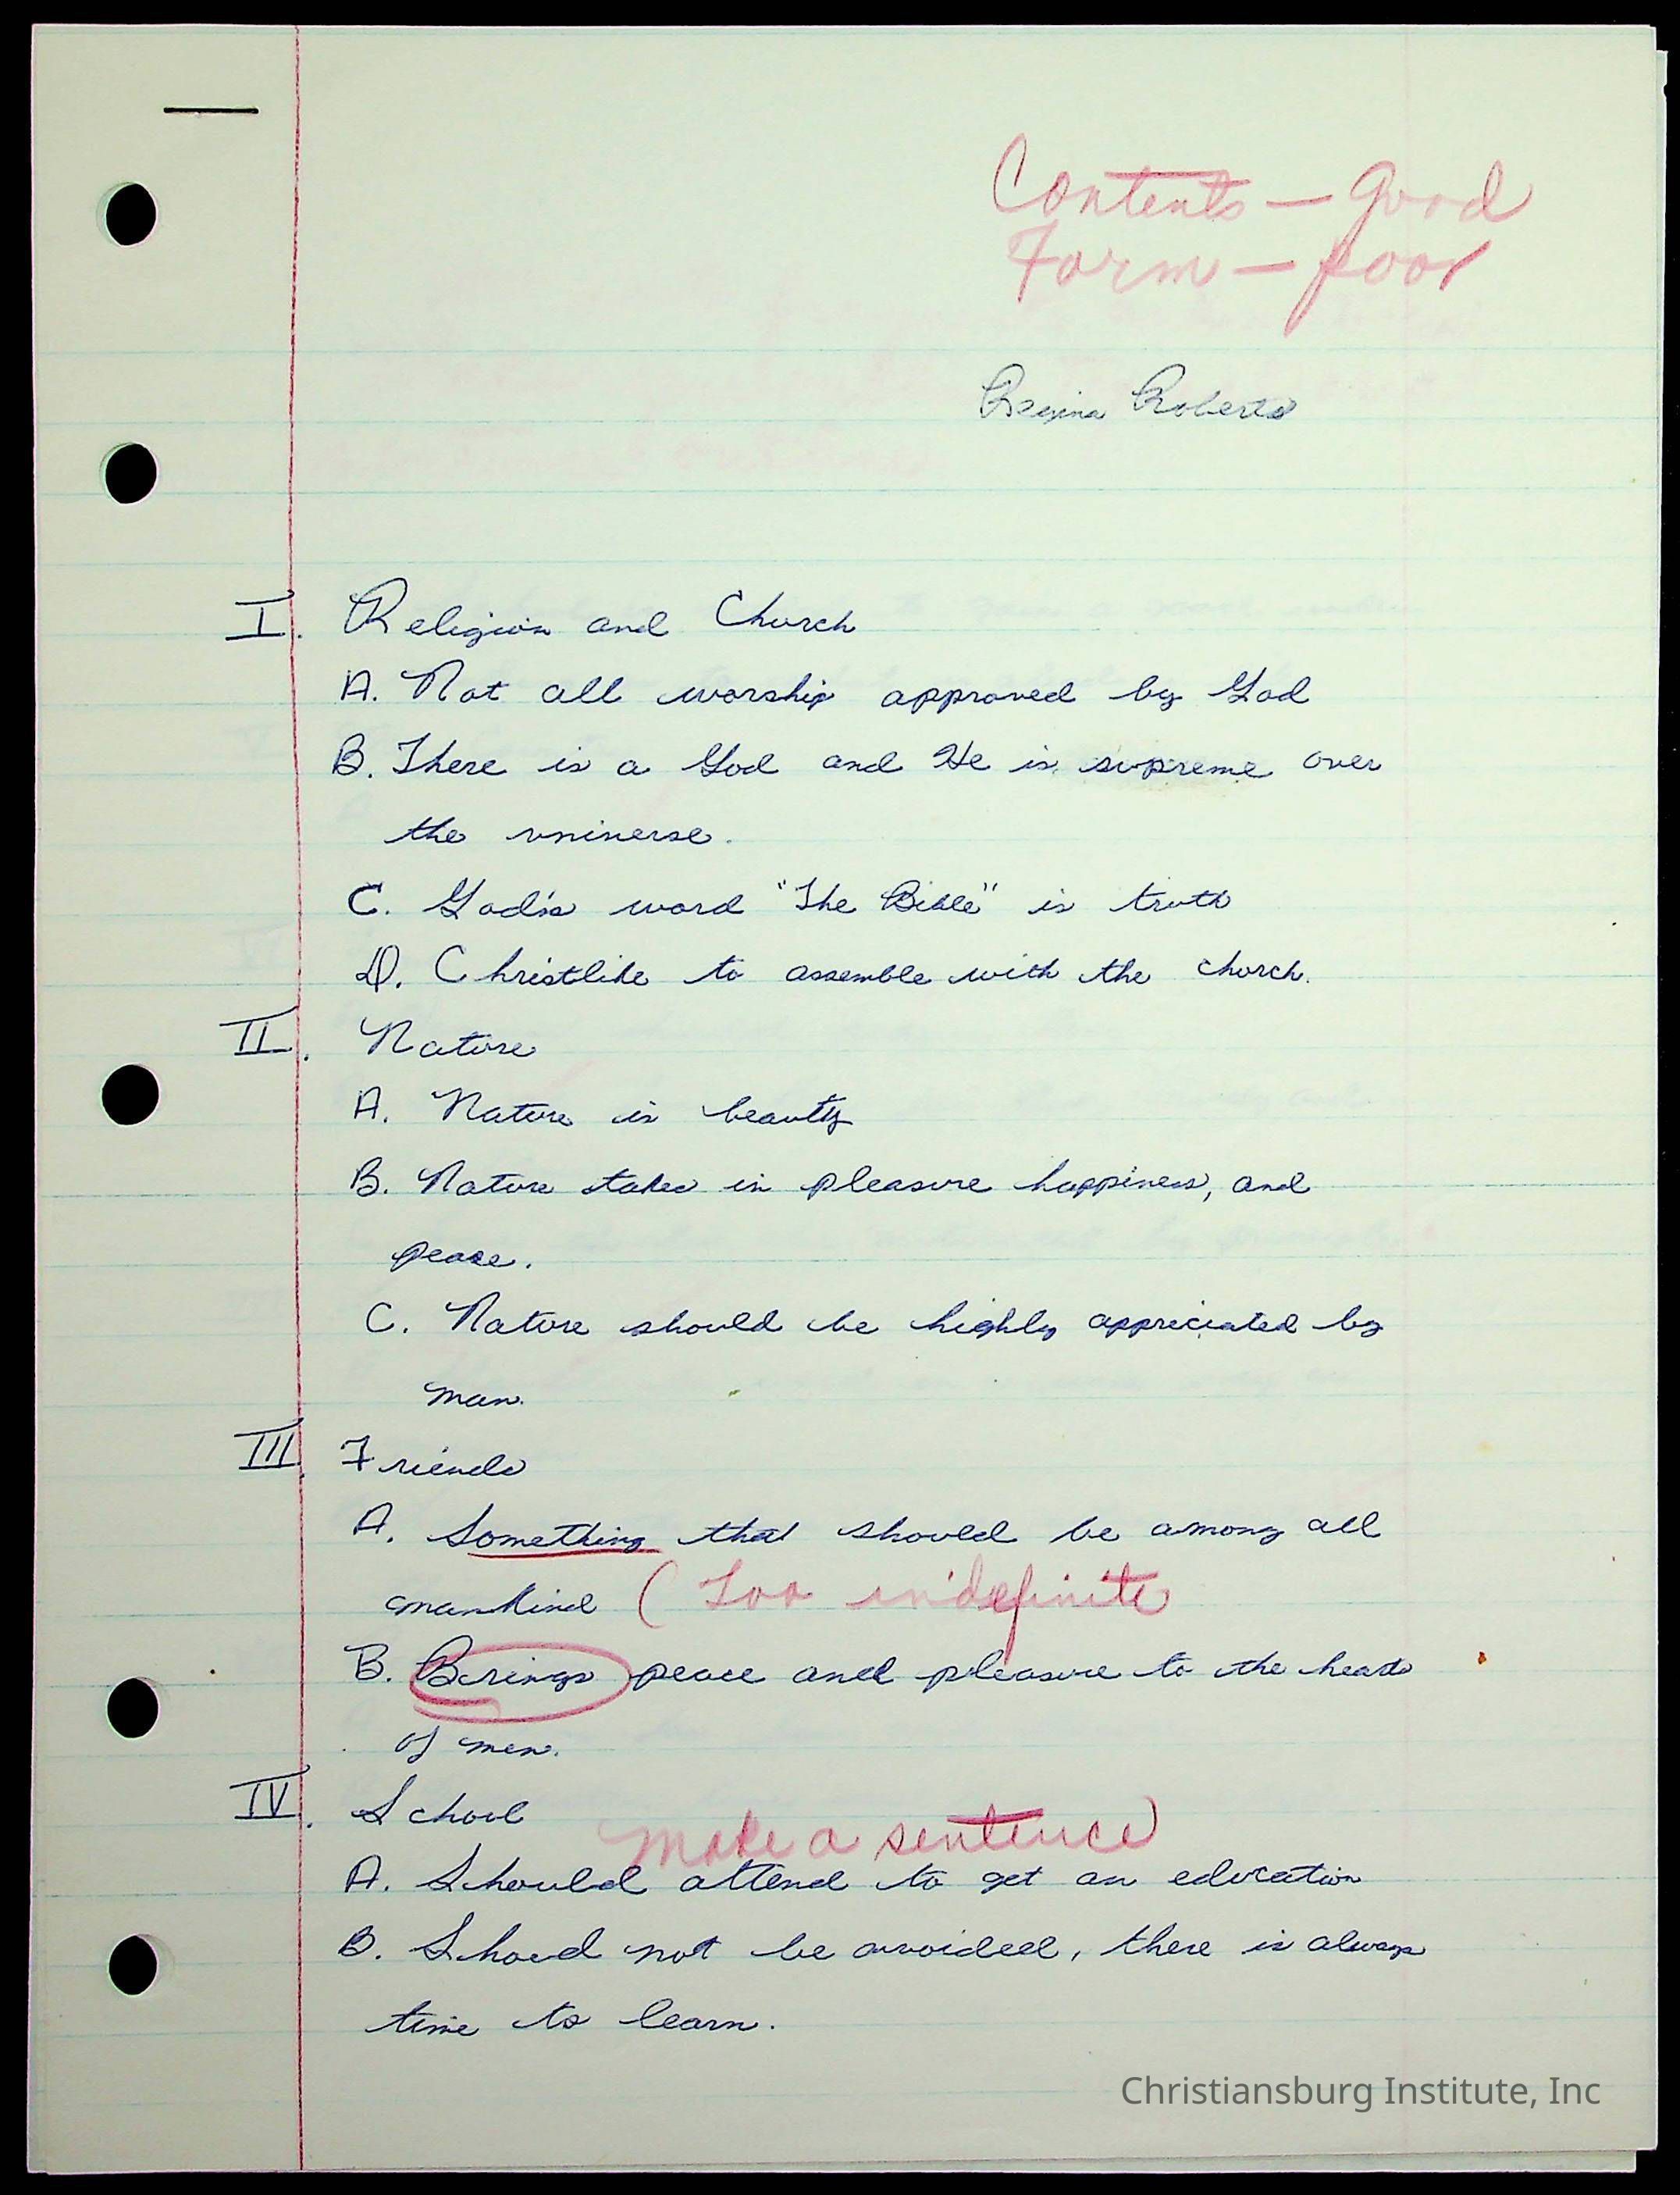 Contents — Good
Form — poor
Regina Roberts
I. Religion and Church
A. Not all worship approved by God
B. There is a God and He is supreme over
the universe.
C. God's word "The Bible" is truth
D. Christlike to assemble with the church.
II. Nature
A. Nature is beauty
B. Nature takes in pleasure happiness, and
peace.
C. Nature should be highly appreciated by
man.
III. Friends
A. Something that should be among all
mankind ( Too indefinite
B. Brings peace and pleasure to the hearts
of men.
IV. School
make a sentence)
A. Should attend to get an education
B. Shoud not be avoided, there is always
time to learn.
Christiansburg Institute, Inc